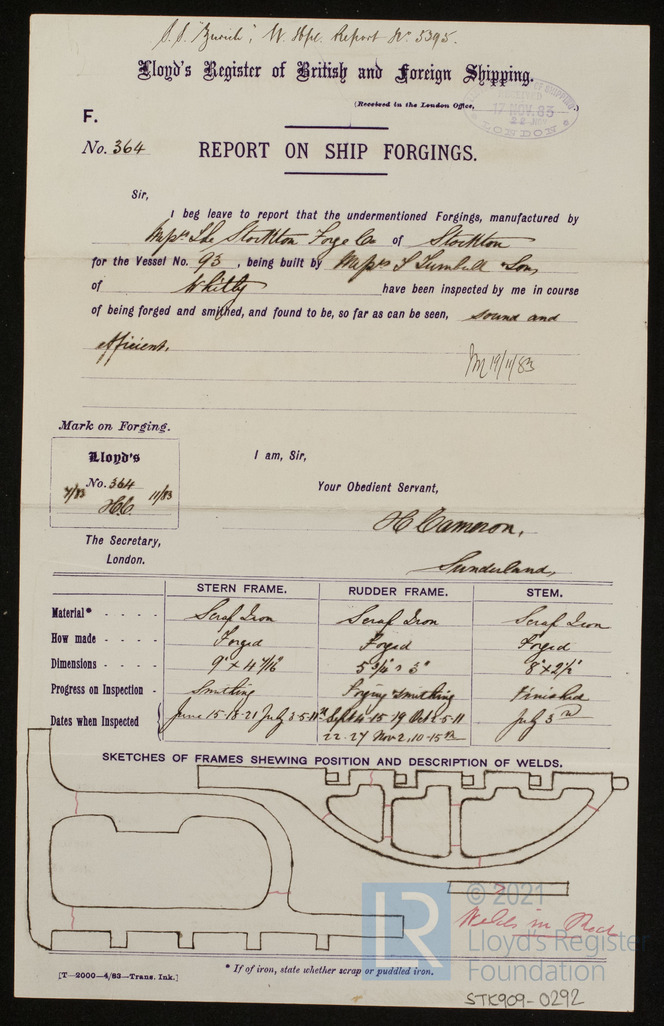 S.S. "Zurich", W. Hpl. Report No. 3395.
Lloyd's Register of British and Foreign Shipping.
(Received in the London Office,
17 NOV. 83
LONDON
F.
No. 364
REPORT ON SHIP FORGINGS.
Sir,
I beg leave to report that the undermentioned Forgings, manufactured by
Messrs The Stockton Forge Co of Stockton
for the Vessel No. 93, being built by Messrs T Turnbull & Son
of Whitby have been inspected by me in course
of being forged and smithed, and found to be, so far as can be seen, sound and
efficient.
19/11/83
Mark on Forging.
Lloyd's
No. 364
7/83 H.C. 11/83
I am, Sir,
Your Obedient Servant,
H Cameron,
Sunderland,
The Secretary,
London.
STERN FRAME. RUDDER FRAME. STEM.
Material* - - - - Scrap Iron Scrap Iron Scrap Iron
How made - - - - Forged Forged Forged
Dimensions - - - - 9" x 4 7/16" 5 3/4" x 3" 8" x 2 1/2"
Progress on Inspection - Smithing Forging & Smithing Finished
Dates when Inspected June 15-18-21 July 3-5-11th Sept 4-15 19 Oct 2-5-11 July 3rd
22-27 Nov 2, 10-15th
SKETCHES OF FRAMES SHEWING POSITION AND DESCRIPTION OF WELDS.
Welds in Red
© 2021
LR Lloyd's Register
Foundation
* If of iron, state whether scrap or puddled iron.
[T—2000—4/83—Trans. Ink.]
STK909-0292